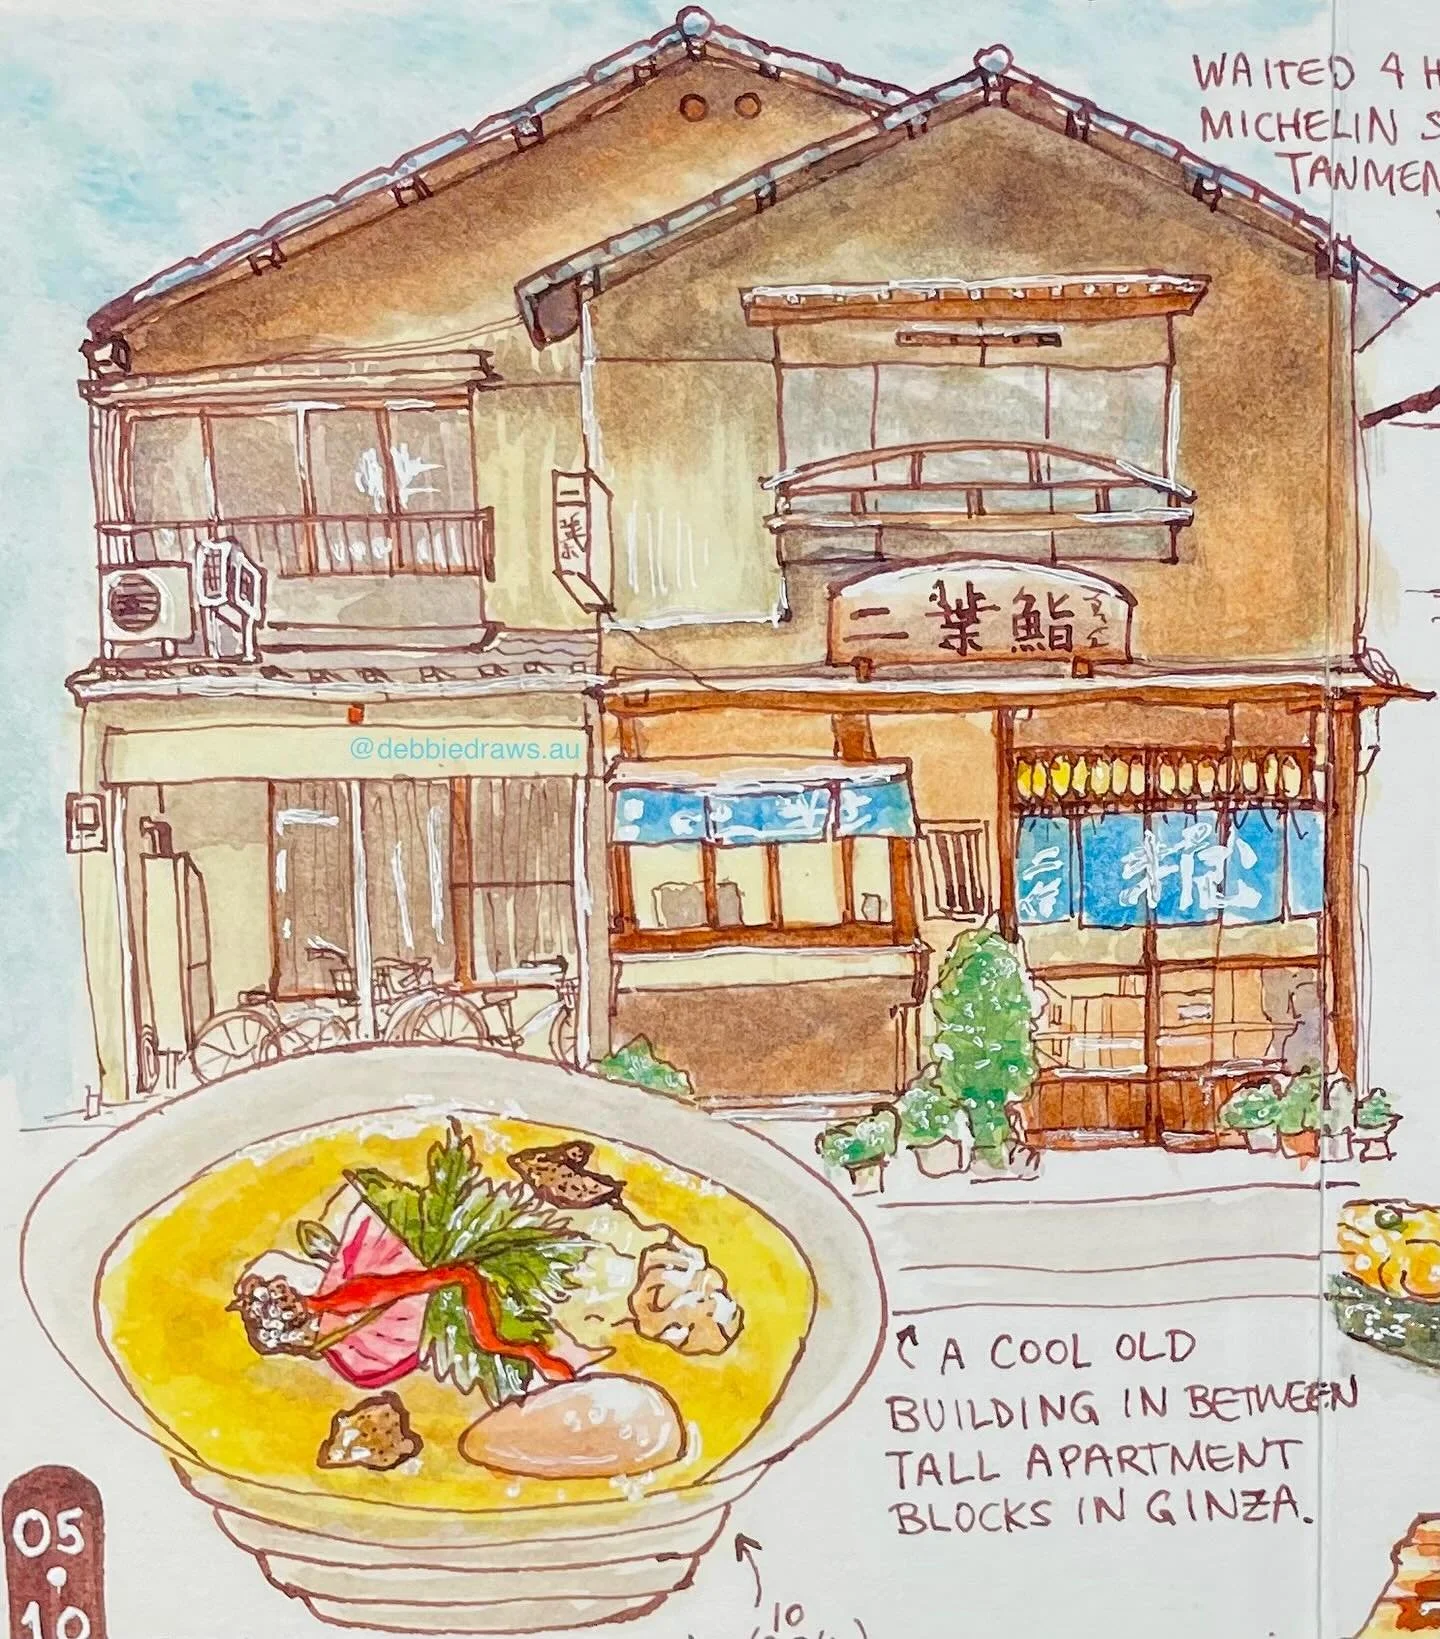 WAITED 4 H
MICHELIN S
TANMEN
二葉
二葉鮨
@debbiedraws.au
A COOL OLD
BUILDING IN BETWEEN
TALL APARTMENT
BLOCKS IN GINZA.
05
10
10